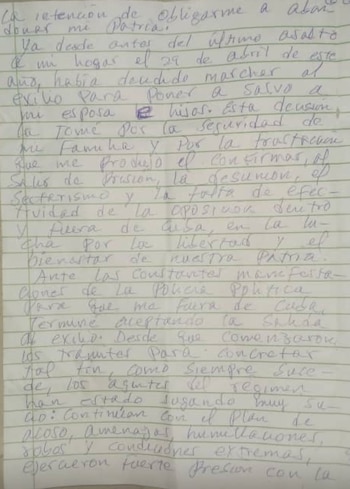 la intención de obligarme a aban
donar mi Patria.
Ya desde antes del último asalto
a mi hogar el 29 de abril de este
año, había decidido marchar al
exilio para poner a salvo a
mi esposa e hijos. Esta decisión,
la tomé por la seguridad de
mi Familia y por la frustración
que me produjo el confirmar, al
salir de prisión, la desunión, el
sectarismo y la falta de efec-
tividad de la oposición dentro
y fuera de Cuba, en la lu-
cha por la libertad y el
bienestar de nuestra Patria.
Ante las constantes manifesta-
ciones de la Policía Política
para que me fuera de Cuba,
terminé aceptando la salida
al exilio. Desde que comenzaron
los trámites para concretar
tal fin, como siempre suce-
de, los agentes del régimen
han estado jugando muy su-
cio: Continúan con el plan de
acoso, amenazas, humillaciones,
robos y condiciones extremas,
ejercieron fuerte presión con la